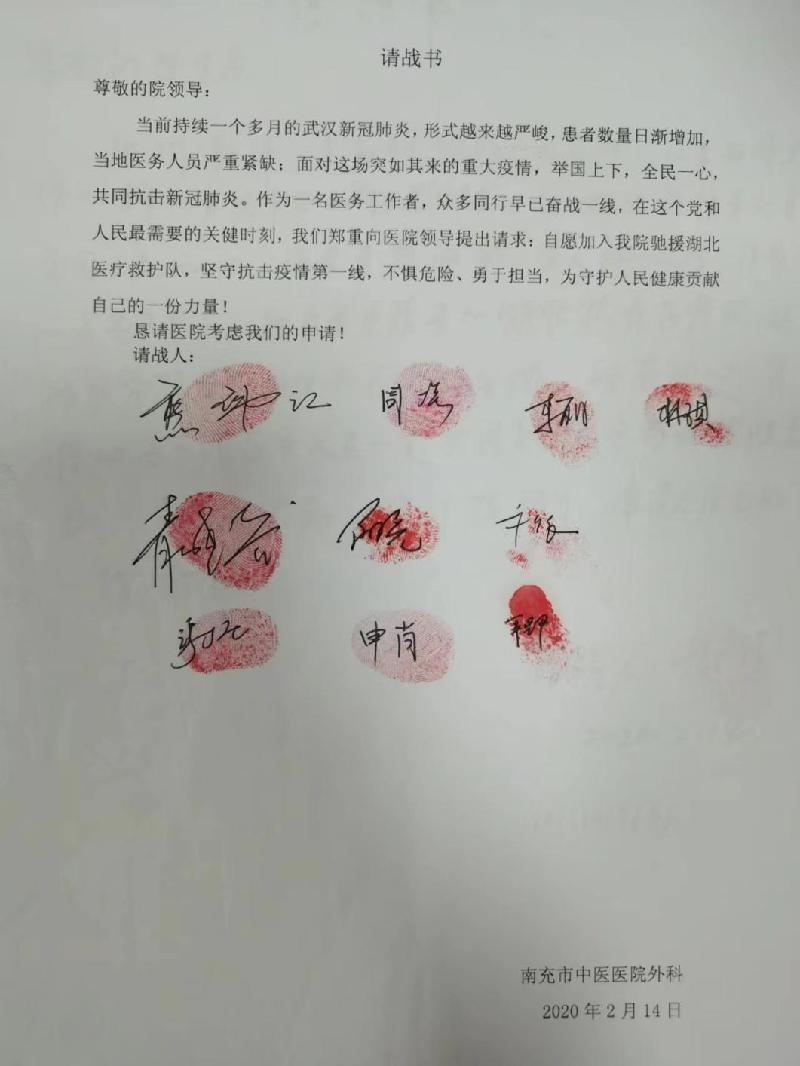 请战书
尊敬的院领导：
当前持续一个多月的武汉新冠肺炎，形式越来越严峻，患者数量日渐增加，
当地医务人员严重紧缺；面对这场突如其来的重大疫情，举国上下，全民一心，
共同抗击新冠肺炎。作为一名医务工作者，众多同行早已奋战一线，在这个党和
人民最需要的关健时刻，我们郑重向医院领导提出请求：自愿加入我院驰援湖北
医疗救护队，坚守抗击疫情第一线，不惧危险、勇于担当，为守护人民健康贡献
自己的一份力量！
恳请医院考虑我们的申请！
请战人：
申肖
南充市中医医院外科
2020年2月14日